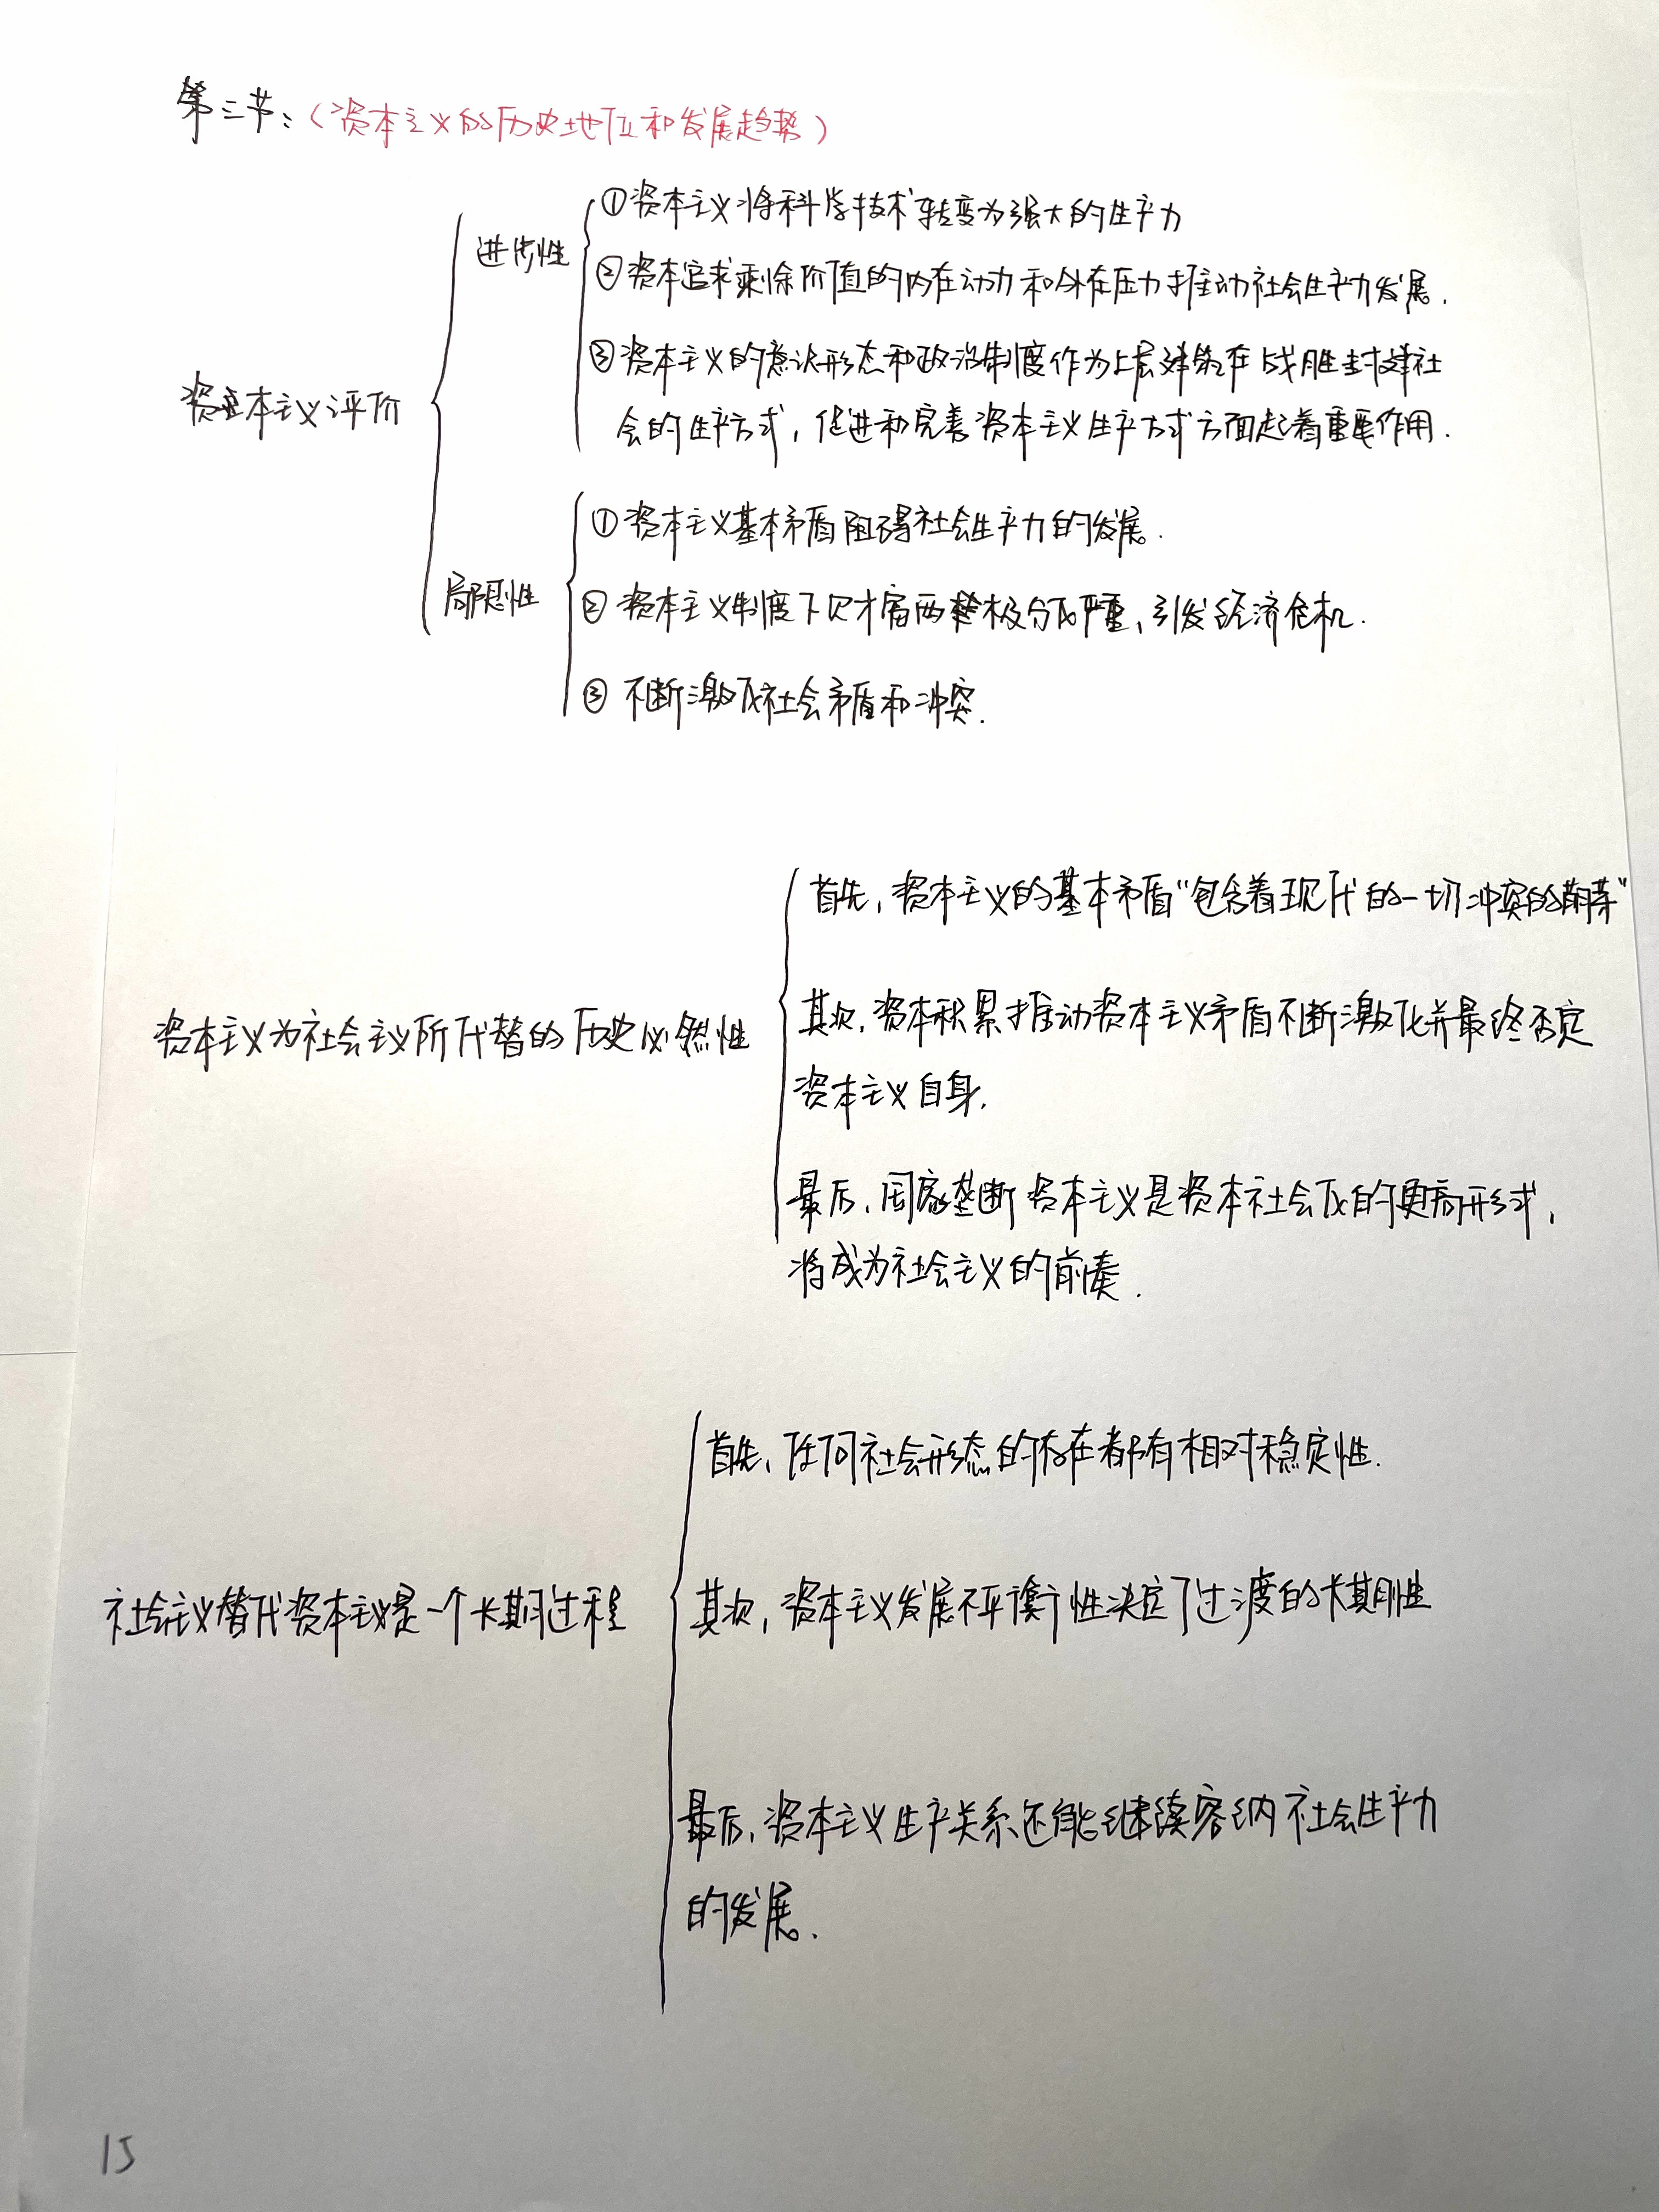 第三节：（资本主义的历史地位和发展趋势）
资本主义评价
进步性
①资本主义将科学技术转变为强大的生产力
②资本追求剩余价值的内在动力和外在压力推动社会生产力发展.
③资本主义的意识形态和政治制度作为上层建筑在战胜封建社
会的生产方式，促进和完善资本主义生产方式方面起着重要作用.
局限性
①资本主义基本矛盾阻碍社会生产力的发展.
②资本主义制度下贝才富两极分化严重，引发经济危机.
③不断激化社会矛盾和冲突.
资本主义为社会主义所代替的历史必然性
首先，资本主义的基本矛盾“包含着现代的一切冲突的萌芽”
其次，资本积累推动资本主义矛盾不断激化并最终否定
资本主义自身.
最后，国家垄断资本主义是资本社会化的更高形式，
将成为社会主义的前奏.
社会主义替代资本主义是一个长期过程
首先，任何社会形态的存在都有相对稳定性.
其次，资本主义发展不平衡性决定了过渡的长期性
最后，资本主义生产关系还能继续容纳社会生产力
的发展.
15